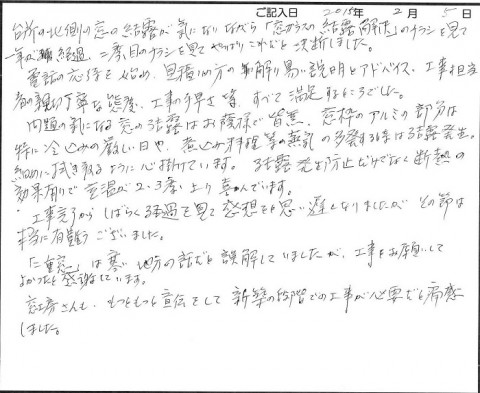 ご記入日 2015年 2月 5日
台所の北側の窓の結露が気になりながら「窓ガラスの結露解決」のチラシを見て
年が経過、二度目のチラシを見てやっぱりこれだと決断しました。
電話の応待を始め、見積の方の解り易い説明とアドバイス、工事担当
者の親切丁寧な態度、工事の手早さ皆、すべて満足するところでした。
問題の気になる窓の結露はお陰様で皆無、窓枠のアルミの部分は
特に冷え込みの厳しい日や、煮込み料理等の蒸気の多発する時は結露発生。
細めに拭き取るように心掛けています。結露発生防止だけでなく断熱の
効果有りで室温が2.3度上り喜んでいます。
工事完了からしばらく経過を見て感想をと思い遅くなりましたが その節は
本当に有難うございました。
「二重窓」は寒い地方の話だと誤解していましたが、工事をお願いして
よかったと感謝しています。
窓工房さんも、もっともっと宣伝をして 新築の段階での工事が必要だと痛感
しました。